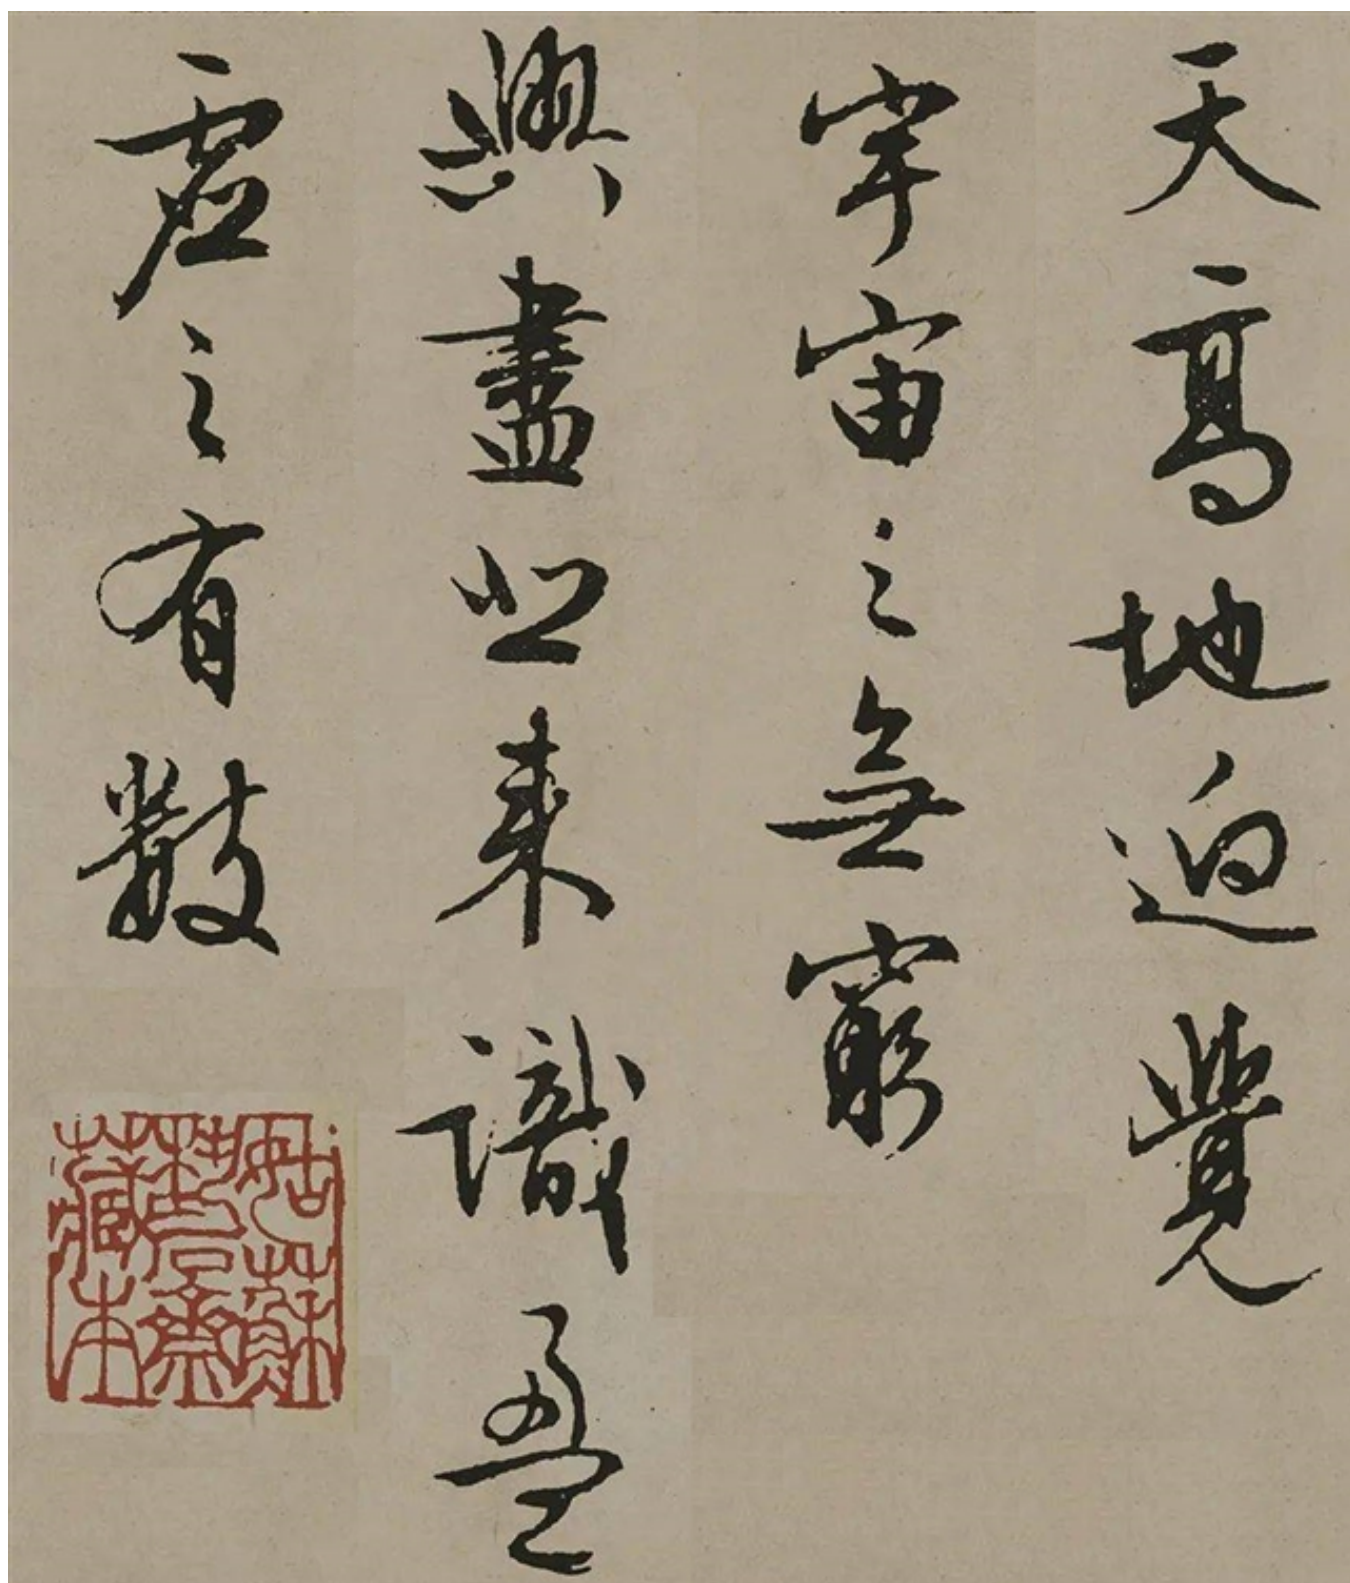 天高地迥覺
宇宙之無窮
興盡悲來識盈
虛之有數
姑蘇
齋
藏本